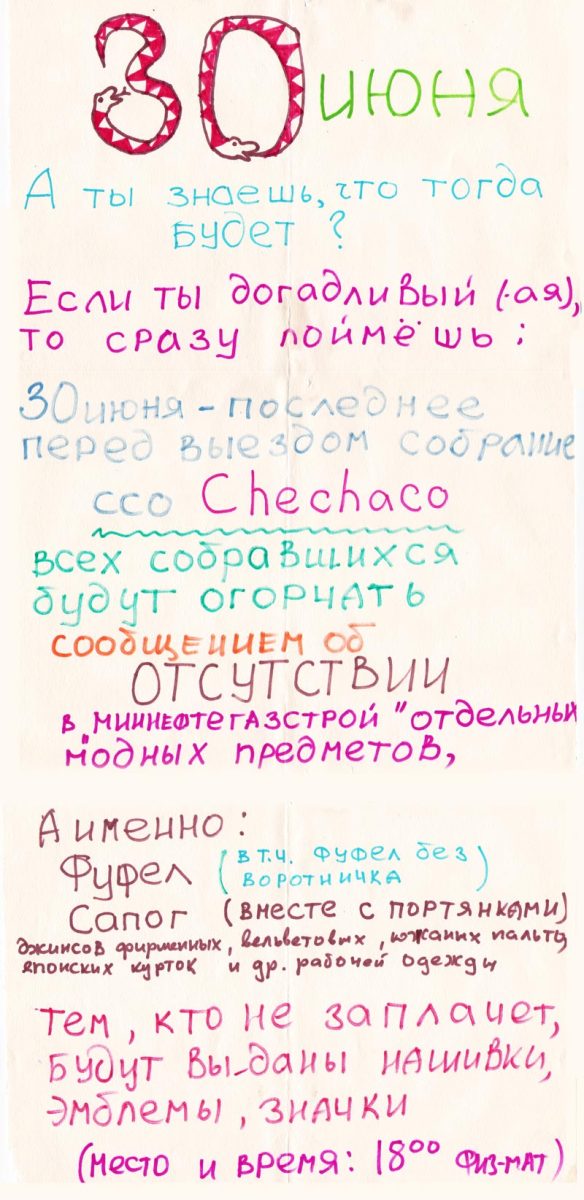 30 июня
А ты знаешь, что тогда
будет ?
Если ты догадливый (-ая),
то сразу поймёшь :
30 июня - последнее
перед выездом собрание
ССО Chechaco
всех собравшихся
будут огорчать
сообщением об
ОТСУТСТВИИ
в МИННЕФТЕГАЗСТРОЙ "отдельных
модных предметов,
А именно :
Фуфел (в т.ч. фуфел без
воротничка)
Сапог (вместе с портянками)
джинсов фирменных, вельветовых, южаних пальто,
японских курток и др. рабочей одежды
Тем, кто не заплачет,
будут вы-даны нашивки,
эмблемы, значки
(место и время: 18⁰⁰ ФИЗ-МАТ)